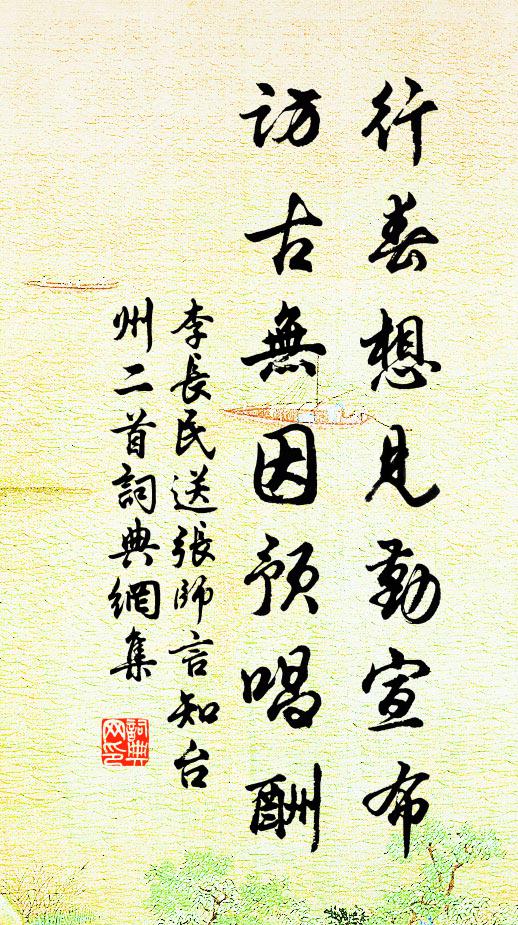 行春想見勤宣布
訪古無因預唱酬
李長民送張師言知台
州二首詞典網集
詞典
网印